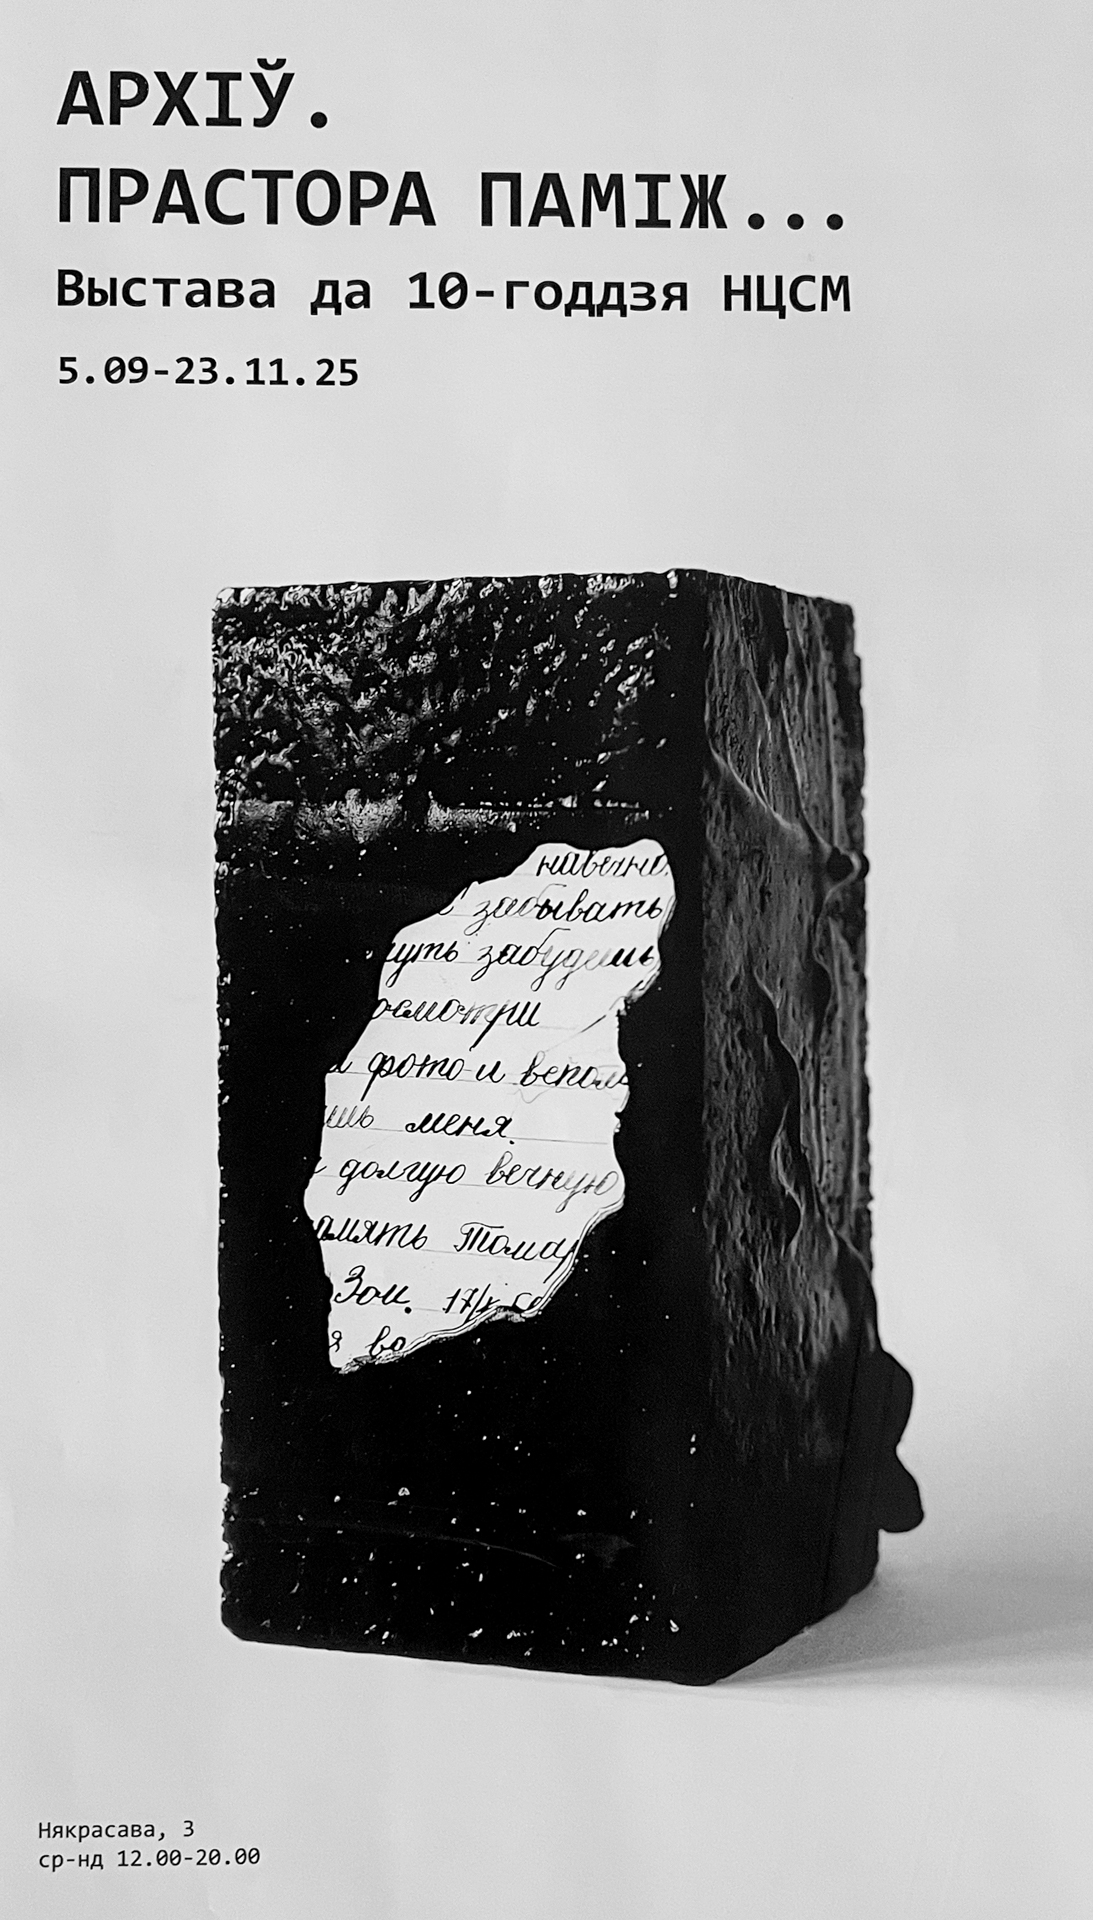 АРХІЎ.
ПРАСТОРА ПАМІЖ...
Выстава да 10-годдзя НЦСМ
5.09-23.11.25
навечно.
забывать
забудешь
осмотри
фото и вспом
ишь меня.
долгую вечную
амять Тома
Зои.
я во
Някрасава, 3
ср-нд 12.00-20.00